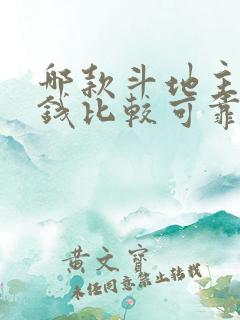 哪款斗地主
钱比较可靠
黄文宝
未经同意禁止转载